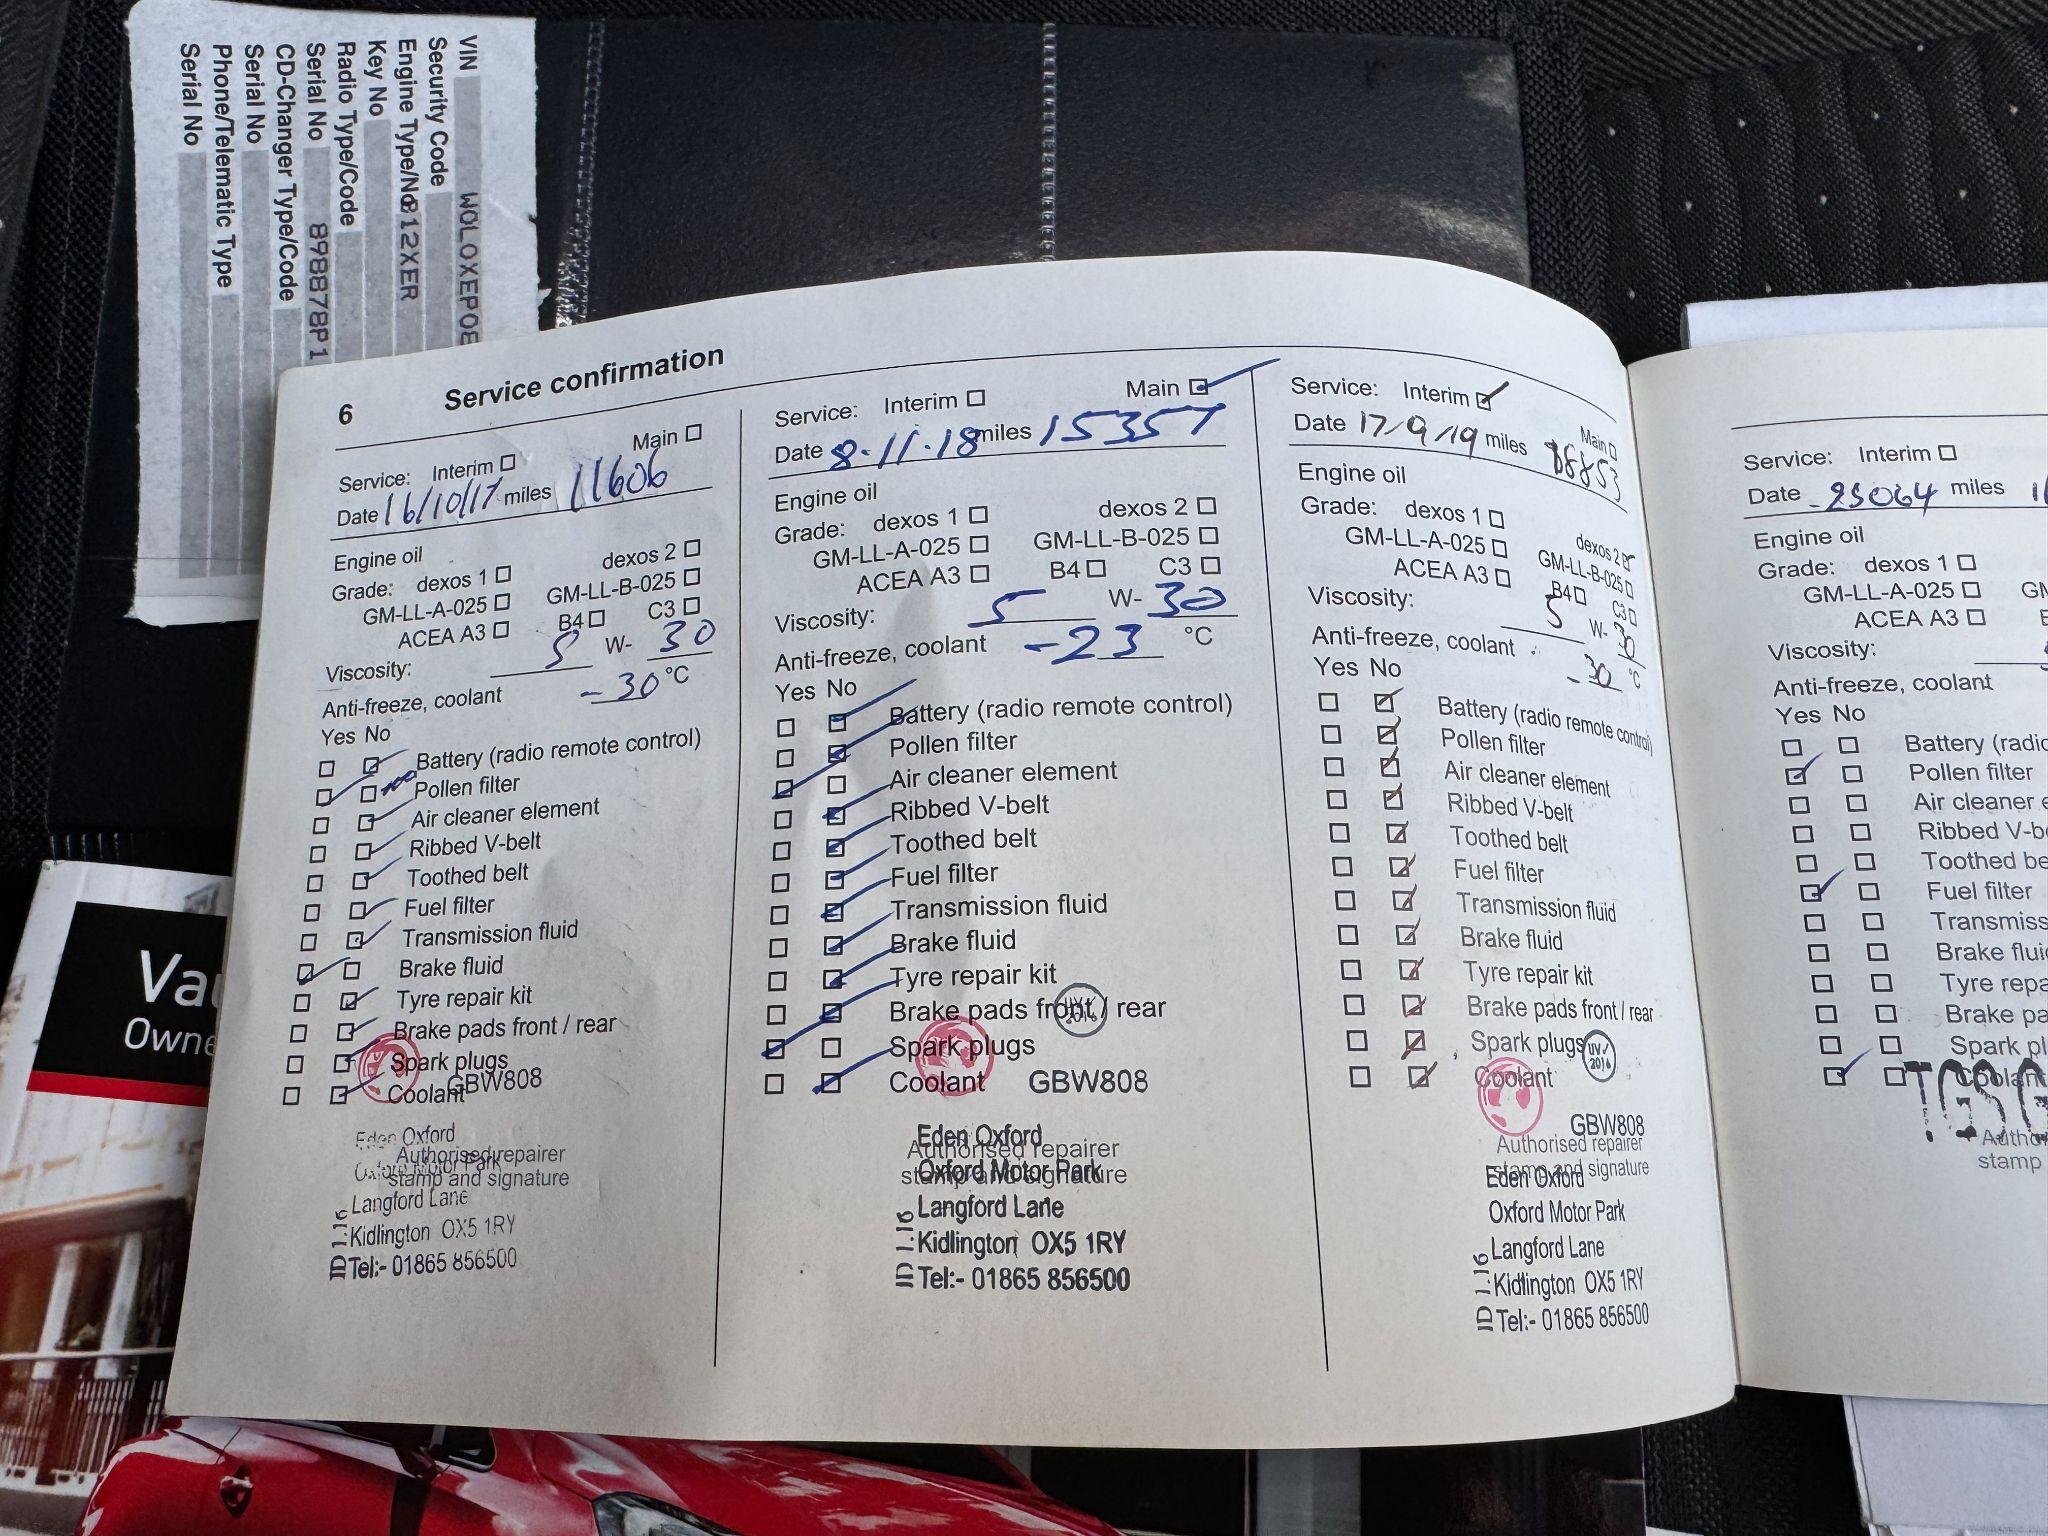 VIN WOLOXEP08
Security Code
Engine Type/No B12XER
Key No
Radio Type/Code
Serial No 898878P1
CD-Changer Type/Code
Serial No
Phone/Telematic Type
Serial No
6 Service confirmation
Service: Interim Main
Date 16/10/17 miles 11606
Engine oil
Grade: dexos 1 dexos 2
GM-LL-A-025 GM-LL-B-025
ACEA A3 B4 C3
Viscosity: 5 W- 30
Anti-freeze, coolant -30 °C
Yes No
Battery (radio remote control)
Pollen filter
Air cleaner element
Ribbed V-belt
Toothed belt
Fuel filter
Transmission fluid
Brake fluid
Tyre repair kit
Brake pads front / rear
Spark plugs
Coolant
GBW808
Eden Oxford
Authorised repairer
Oxford Motor Park
stamp and signature
Langford Lane
Kidlington OX5 1RY
ID 1.16
Tel:- 01865 856500
Service: Interim Main
Date 8.11.18 miles 15357
Engine oil
Grade: dexos 1 dexos 2
GM-LL-A-025 GM-LL-B-025
ACEA A3 B4 C3
Viscosity: 5 W- 30
Anti-freeze, coolant -23 °C
Yes No
Battery (radio remote control)
Pollen filter
Air cleaner element
Ribbed V-belt
Toothed belt
Fuel filter
Transmission fluid
Brake fluid
Tyre repair kit
Brake pads front / rear
UV 2016
Spark plugs
Coolant GBW808
Eden Oxford
Authorised repairer
Oxford Motor Park
stamp and signature
Langford Lane
Kidlington OX5 1RY
ID 1.16
Tel:- 01865 856500
Service: Interim Main
Date 17/9/19 miles
Engine oil
Grade: dexos 1 dexos 2
GM-LL-A-025 GM-LL-B-025
ACEA A3 B4 C3
Viscosity: 5 W- 30
Anti-freeze, coolant -30 °C
Yes No
Battery (radio remote control)
Pollen filter
Air cleaner element
Ribbed V-belt
Toothed belt
Fuel filter
Transmission fluid
Brake fluid
Tyre repair kit
Brake pads front / rear
Spark plugs
UV 2016
Coolant
GBW808
Authorised repairer
stamp and signature
Eden Oxford
Oxford Motor Park
Langford Lane
Kidlington OX5 1RY
ID 1.16
Tel:- 01865 856500
Service: Interim
Date miles
Engine oil
Grade: dexos 1
GM-LL-A-025
ACEA A3
Viscosity:
Anti-freeze, coolant
Yes No
Battery (radio
Pollen filter
Air cleaner
Ribbed V-b
Toothed be
Fuel filter
Transmiss
Brake flui
Tyre repa
Brake pa
Spark pl
Coolant
stamp
Owne